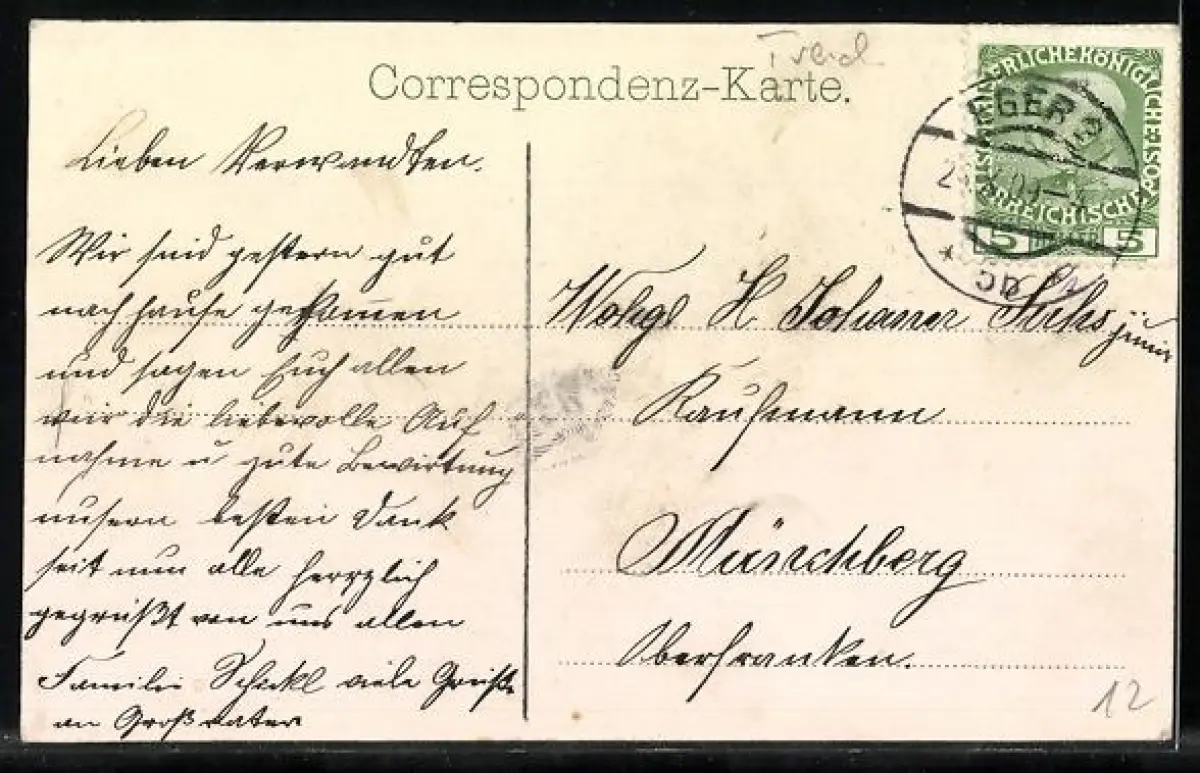 Correspondenz-Karte.
Lieben Verwandten.
Wir sind gestern gut
nach hause gekommen
und sagen Euch allen
für die liebevolle Auf
nahme u gute Bewirtung
unsern besten Dank
seit nun alle herzlich
gegrüßt von uns allen
Familie Schekl viele Grüße
an Großvater
KAISERLICHE KÖNIGLICHE ÖSTERREICHISCHE POST
5 HELLER 5
EGER
Wohlg H. Johann
junior
Kaufmann
Münchberg
Oberfranken.
12